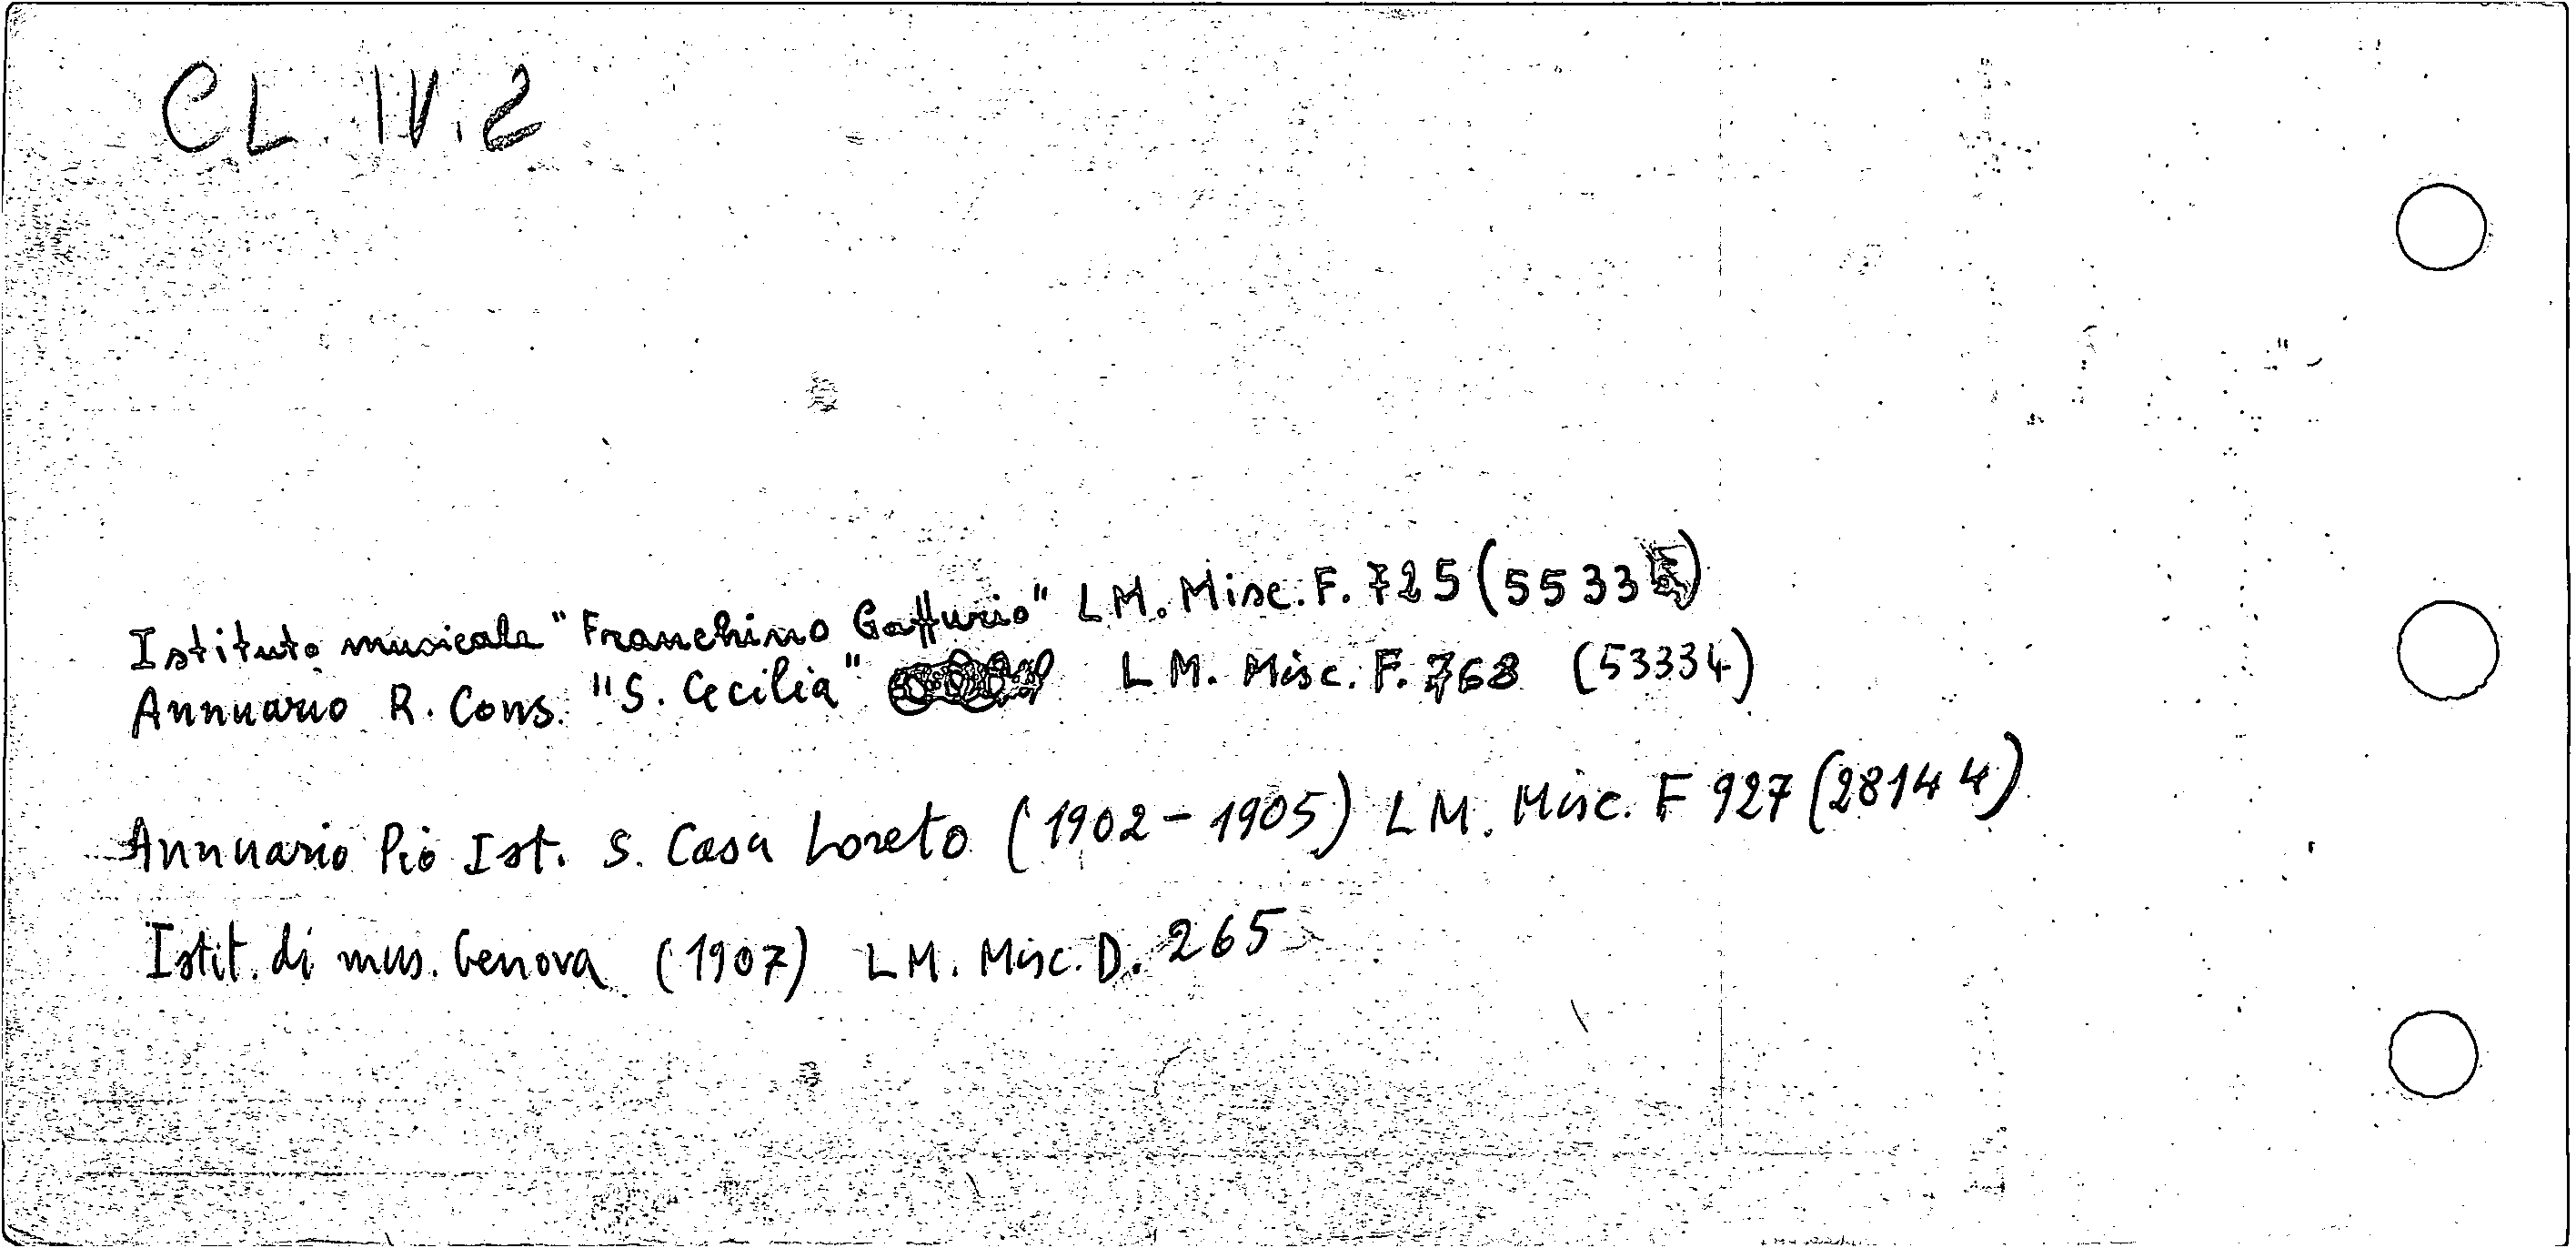 CL. IV. 2
Istituto musicale "Franchino Gaffurio" L M. Misc. F. 725 (5533
Annuario R. Cons. "S. Cecilia" L M. Misc. F. 768 (53334)
Annuario Pio Ist. S. Casa Loreto (1902-1905) L M. Misc. F 927 (28144)
Istit. di mus. Genova (1907) L M. Misc. D. 265